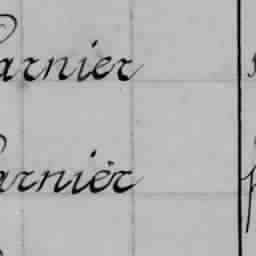 arnier
arnier